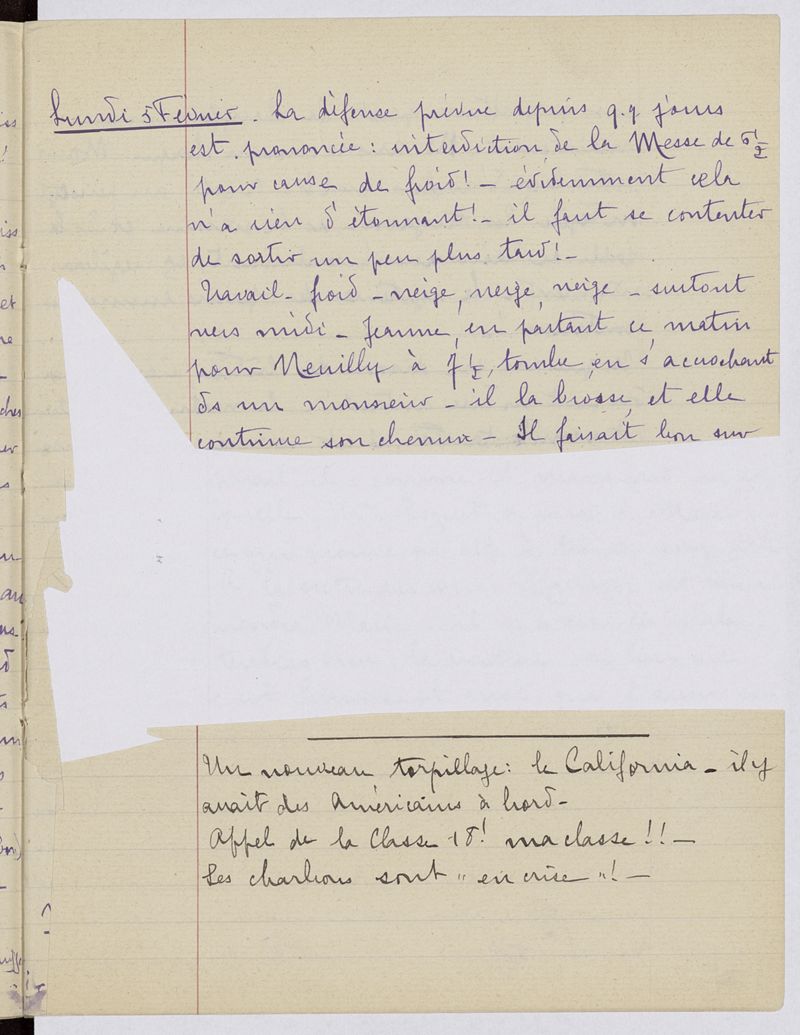 Lundi 5 Février. La défense prévue depuis q.q jours
est prononcée : interdiction de la Messe de 6 1/2
pour cause de froid ! — évidemment cela
n'a rien d'étonnant ! — il faut se contenter
de sortir un peu plus tard ! —
Travail — froid — neige, neige, neige — surtout
vers midi — Jeanne, en partant ce matin
pour Neuilly à 7 1/2, tombe en s'accrochant
ds un monsieur — il la brosse, et elle
continue son chemin — Il faisait bon sur
Un nouveau torpillage : le California — il y
avait des Américains à bord —
Appel de la Classe 18 ! ma classe !! —
Les charbons sont "en crise" ! —